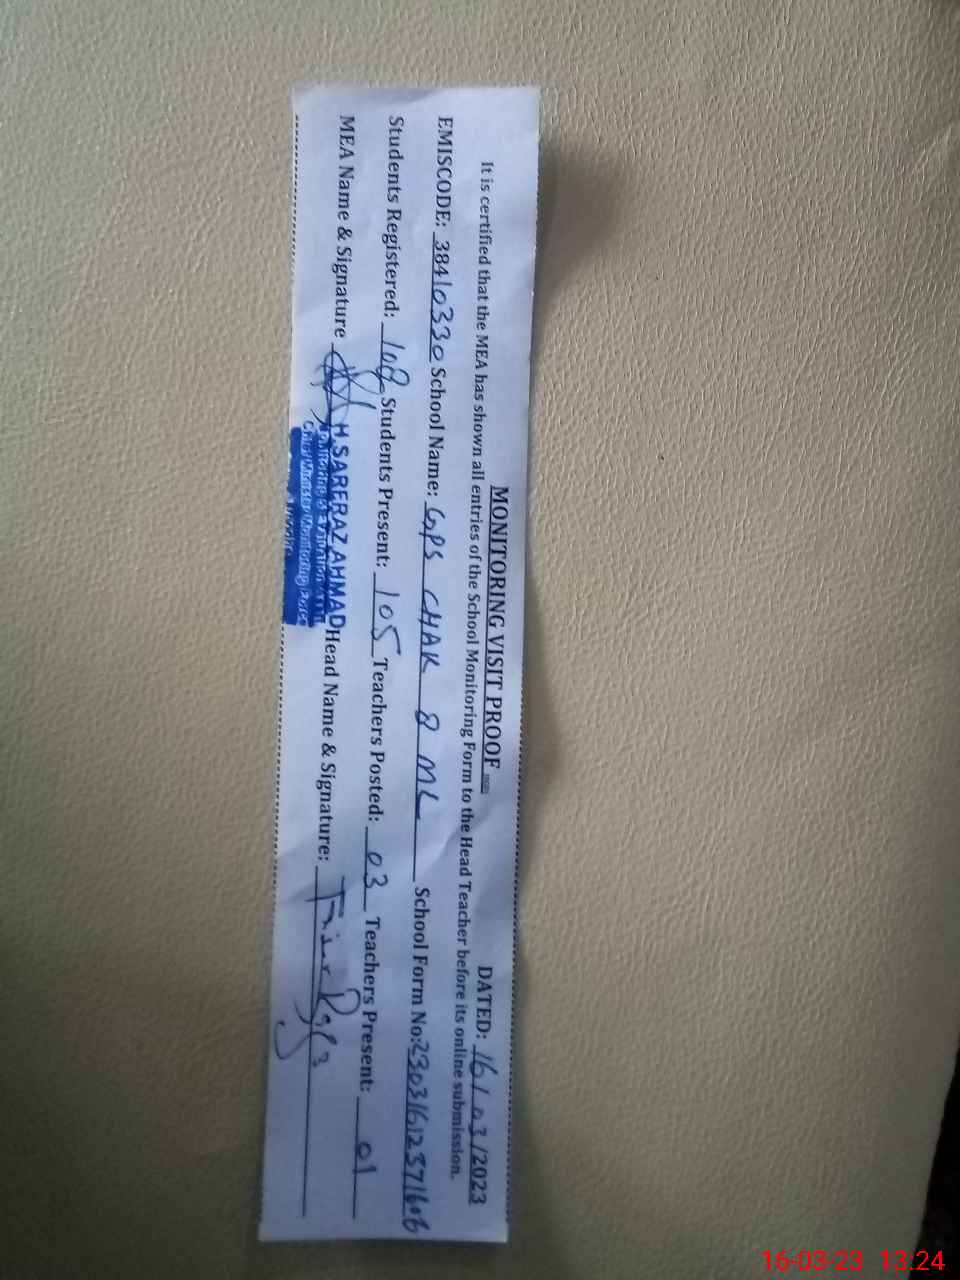 MONITORING VISIT PROOF
DATED: 16/03/2023
It is certified that the MEA has shown all entries of the School Monitoring Form to the Head Teacher before its online submission.
EMISCODE: 38410330 School Name: GPS CHAK 8 ML School Form No:
Students Registered: 108 Students Present: 105 Teachers Posted: 03 Teachers Present: 01
MEA Name & Signature H.SARFRAZ AHMAD Head Name & Signature:
Chief Minister Monitoring Force
16-03-23 13:24